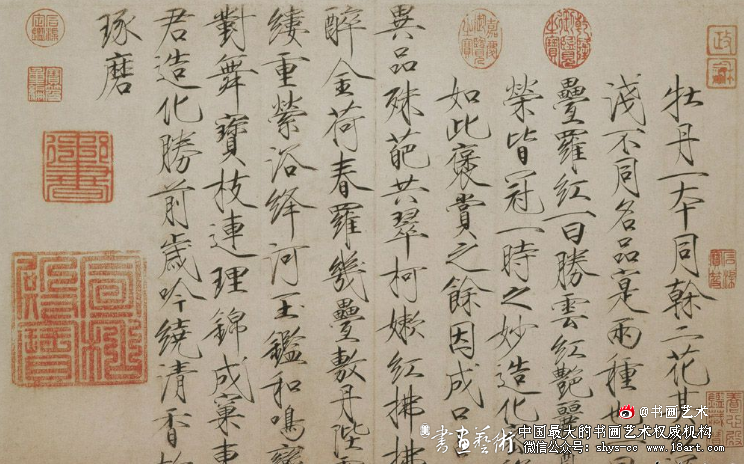 牡丹一本同榦二花其
淺不同名品寔兩種也
疊羅紅一曰勝雲紅艷麗
榮皆冠一時之妙造化
如此褒賞之餘因成口
異品殊葩共翠柯嫩紅拂拂
醉金荷春羅幾疊敷丹陛雲
縷重縈浴絳河玉鑑和鳴鸞
對舞寶枝連理錦成窠東
君造化勝前歲吟繞清香故
琢磨
御書
@书画艺术
書畫藝術
中国最大的书画艺术权威机构
微信公众号:shys-cc www.18art.com